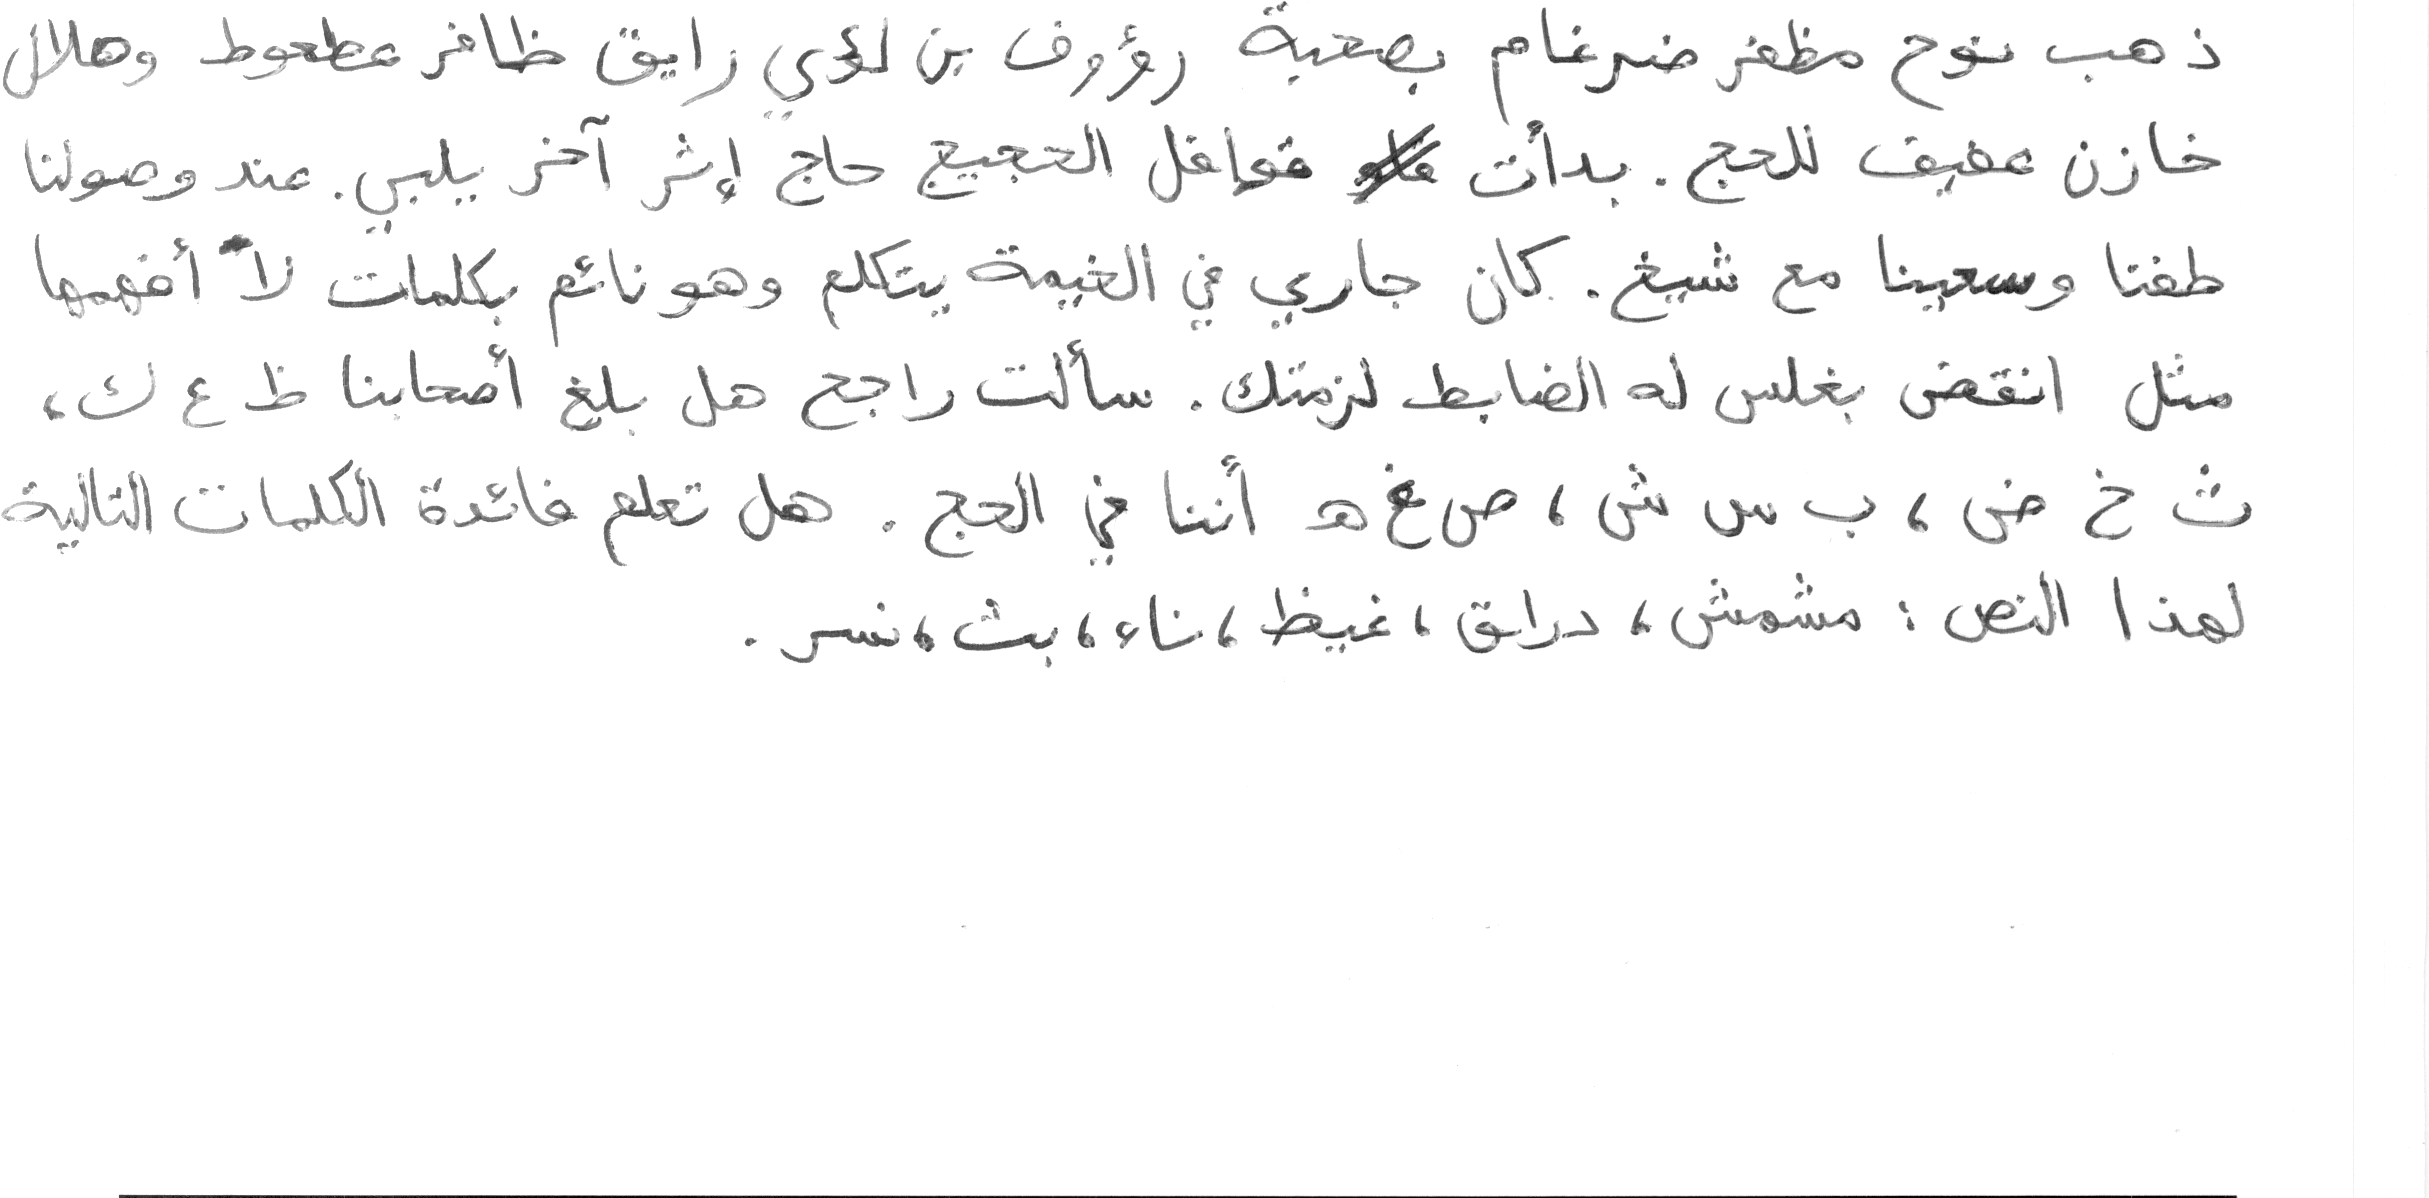 ذهب نوح مظفر ضرغام بصحبة رؤوف بن لؤي رايق ظافر عطعوط وهلال
خازن عفيف للحج. بدأت قوافل الحجيج حاج إثر آخر يلبي. عند وصولنا
طفنا وسعينا مع شيخ. كان جاري في الخيمة يتكلم وهو نائم بكلمات لا أفهمها
مثل انقض بغلس له الضابط لزمتك. سألت راجح هل بلغ أصحابنا ظ ع ك،
ث خ ض، ب س ش، ص غ هـ أننا في الحج. هل تعلم فائدة الكلمات التالية
لهذا النص: مشمش، دراق، غيظ، ناء، بث، نسر.